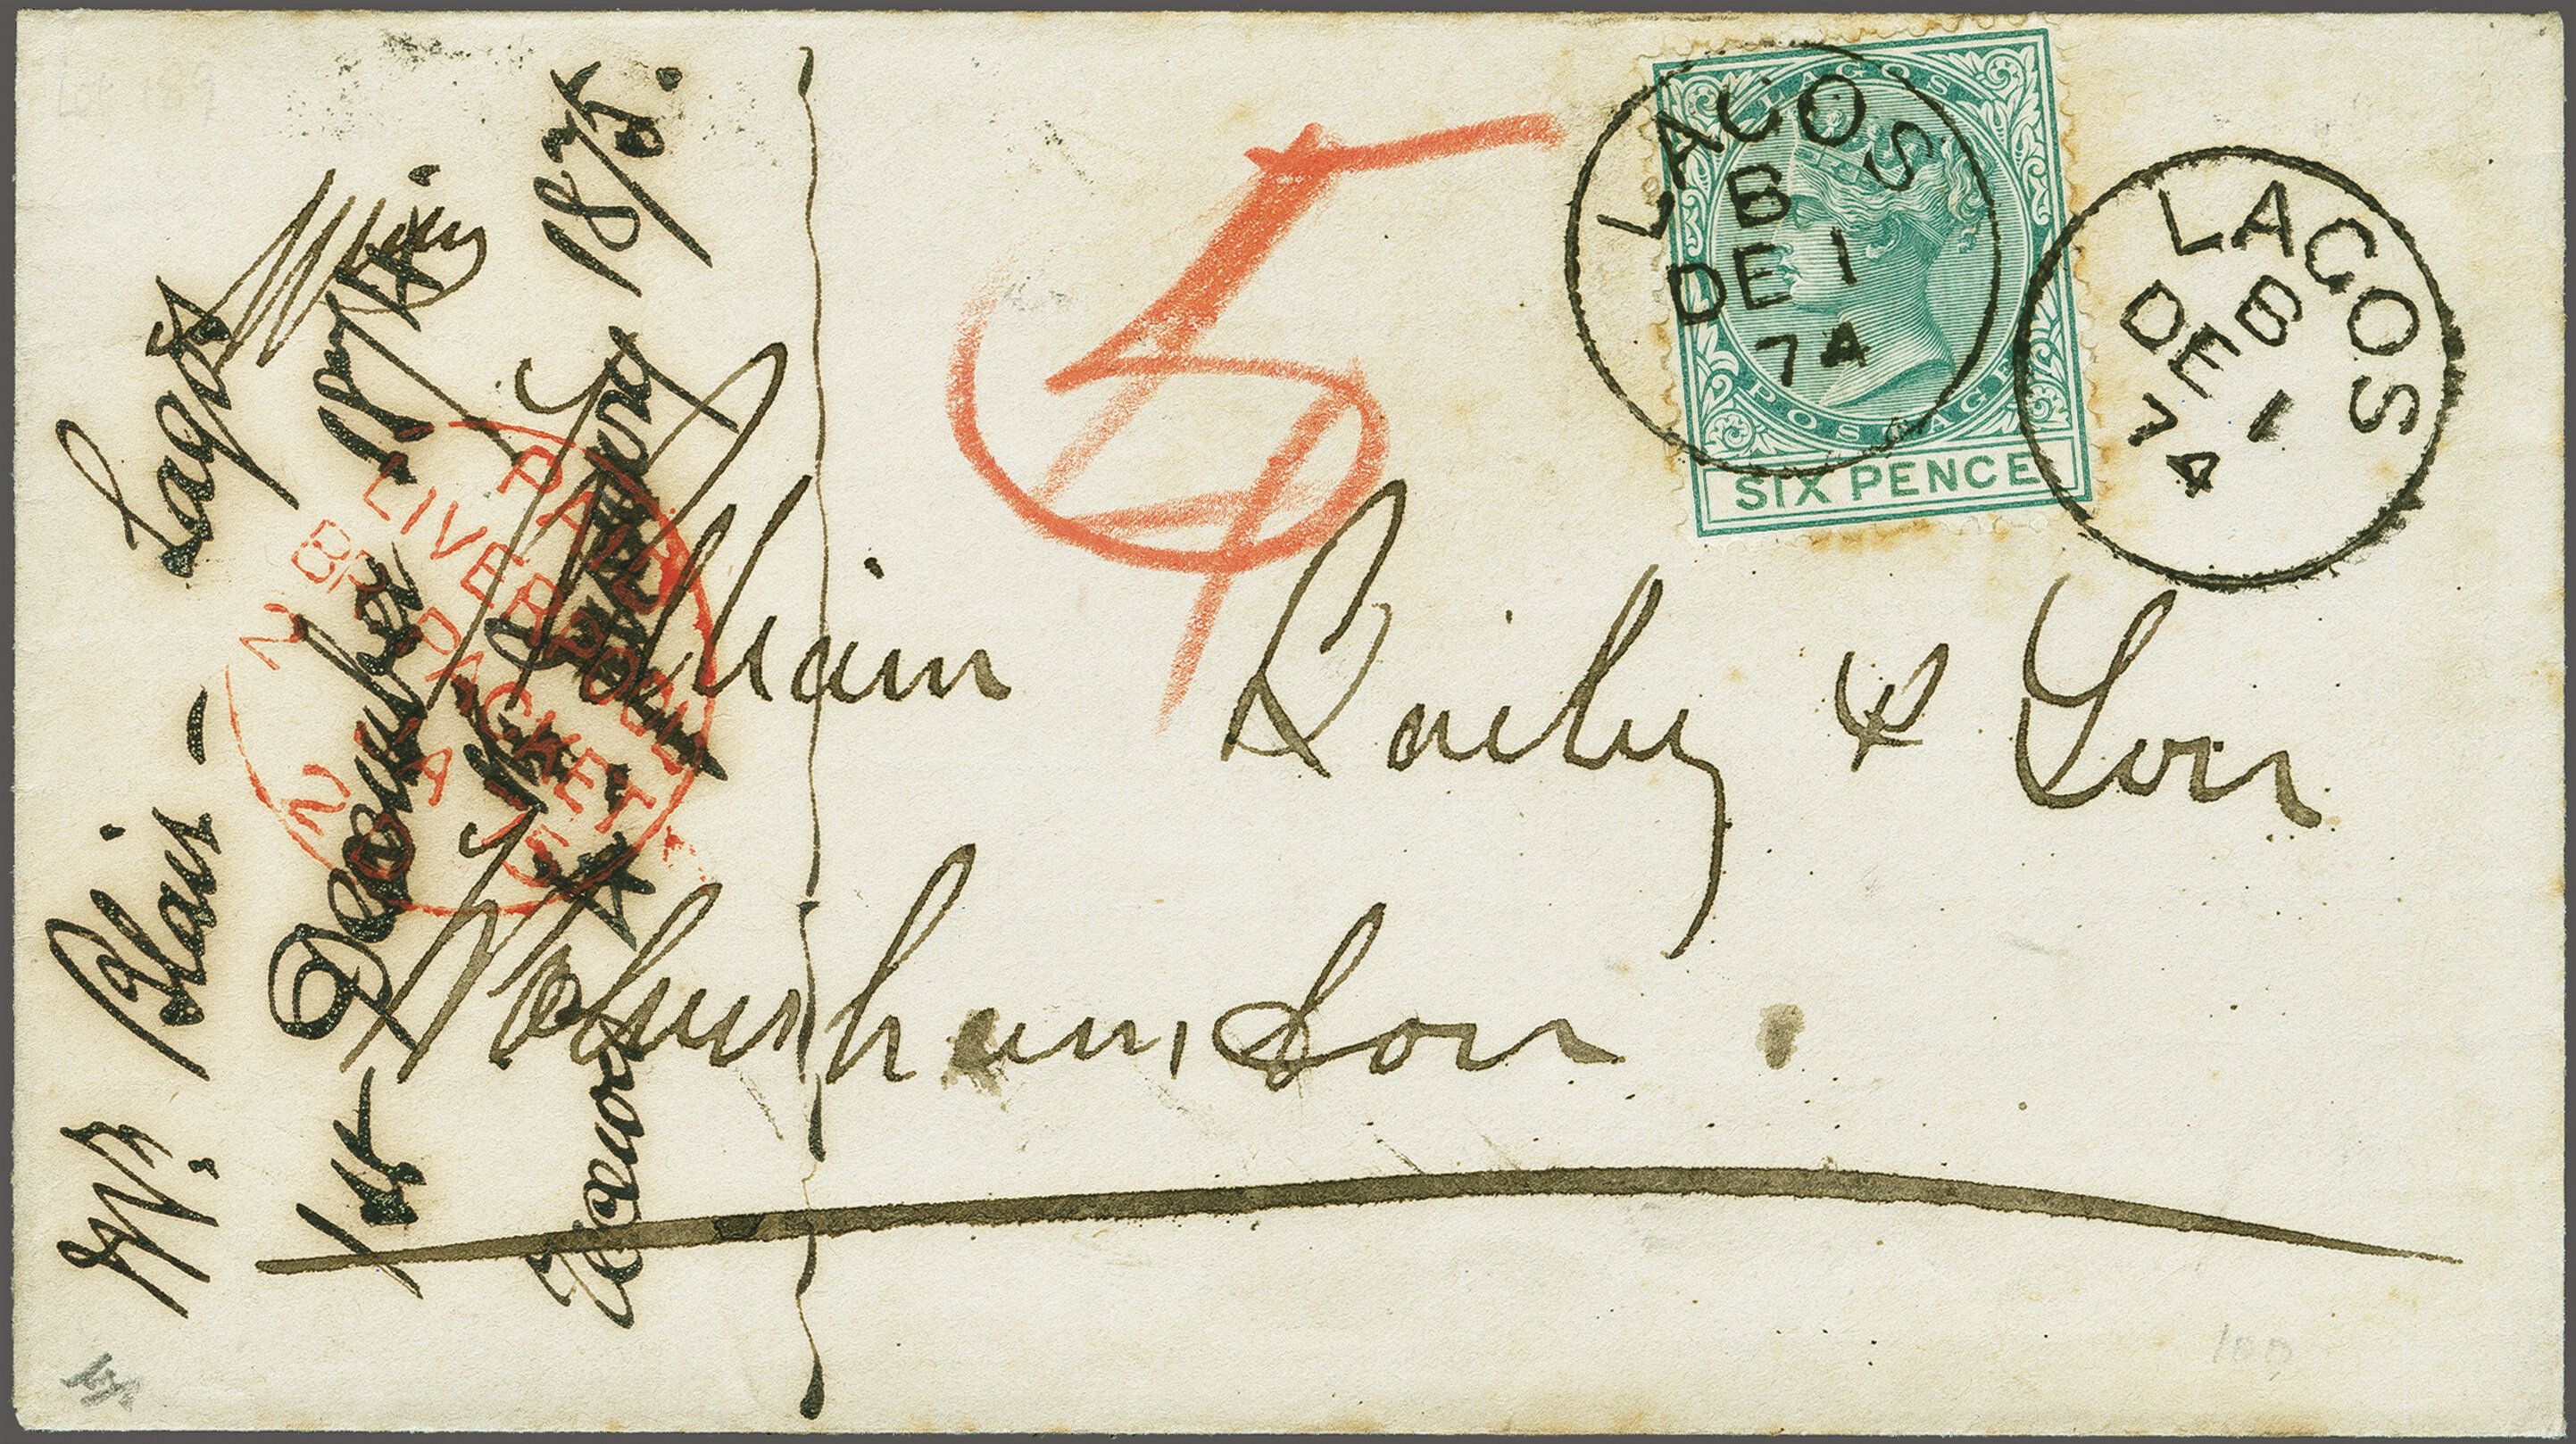 LAGOS
POSTAGE
SIX PENCE
LAGOS
B
DE 1
74
LAGOS
B
DE 1
74
5
William Baily & Son
Wolverhampton
Wm. Blair - Lagos
1st December 1874.
Received January 1875.
PAID
LIVERPOOL
BR. PACKET